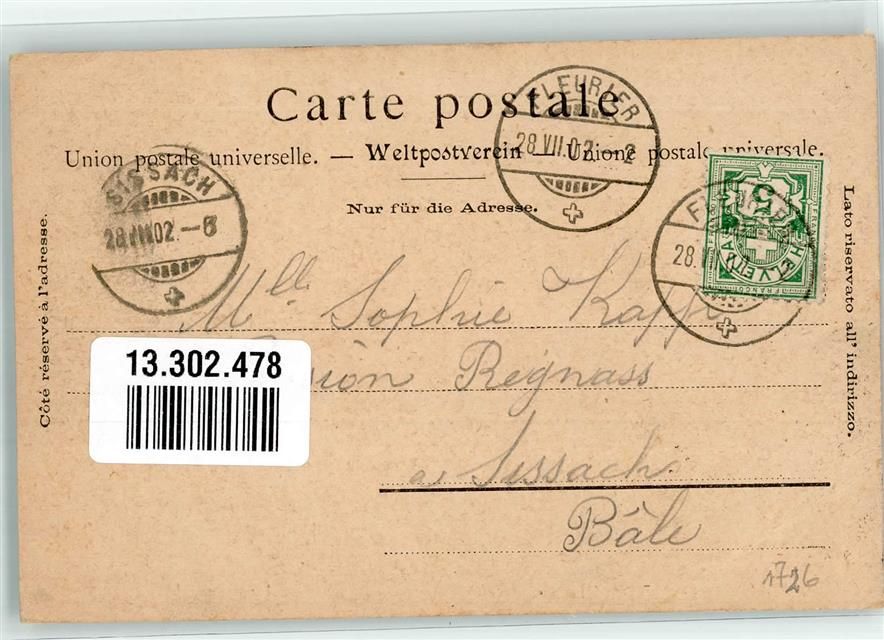 Carte postale
Union postale universelle. — Weltpostverein — Unione postale universale.
Nur für die Adresse.
Côté réservé à l'adresse.
Lato riservato all' indirizzo.
FLEURIER
28.VII.02.–2
SISSACH
28.VII.02.–6
28.VII
5
HELVETIA
FRANCO
Mlle Sophie Kapp
Regnass
a Sissach
Bâle
13.302.478
1726